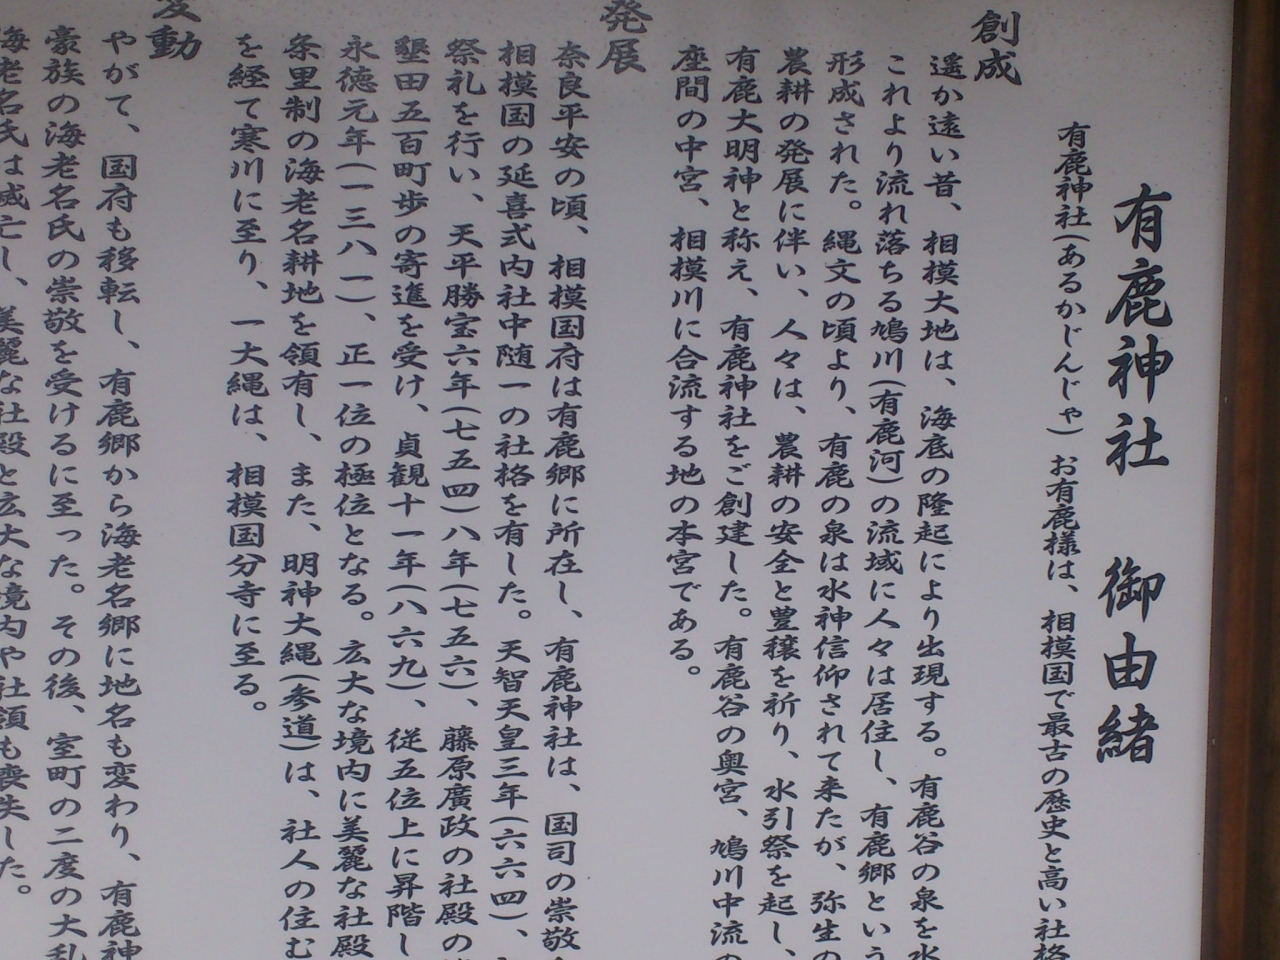 有鹿神社 御由緒
有鹿神社(あるかじんじゃ) お有鹿様は、相模国で最古の歴史と高い社格
創成
遥か遠い昔、相模大地は、海底の隆起により出現する。有鹿谷の泉を水
これより流れ落ちる鳩川(有鹿河)の流域に人々は居住し、有鹿郷という
形成された。縄文の頃より、有鹿の泉は水神信仰されて来たが、弥生の
農耕の発展に伴い、人々は、農耕の安全と豊穣を祈り、水引祭を起し、
有鹿大明神と称え、有鹿神社をご創建した。有鹿谷の奥宮、鳩川中流の
座間の中宮、相模川に合流する地の本宮である。
発展
奈良平安の頃、相模国府は有鹿郷に所在し、有鹿神社は、国司の崇敬
相模国の延喜式内社中随一の社格を有した。天智天皇三年(六六四)、
祭礼を行い、天平勝宝六年(七五四)八年(七五六)、藤原廣政の社殿の
墾田五百町歩の寄進を受け、貞観十一年(八六九)、従五位上に昇階し
永徳元年(一三八一)、正一位の極位となる。広大な境内に美麗な社殿
条里制の海老名耕地を領有し、また、明神大縄(参道)は、社人の住む
を経て寒川に至り、一大縄は、相模国分寺に至る。
変動
やがて、国府も移転し、有鹿郷から海老名郷に地名も変わり、有鹿神
豪族の海老名氏の崇敬を受けるに至った。その後、室町の二度の大乱
海老名氏は滅亡し、美麗な社殿と広大な境内や社領も喪失した。